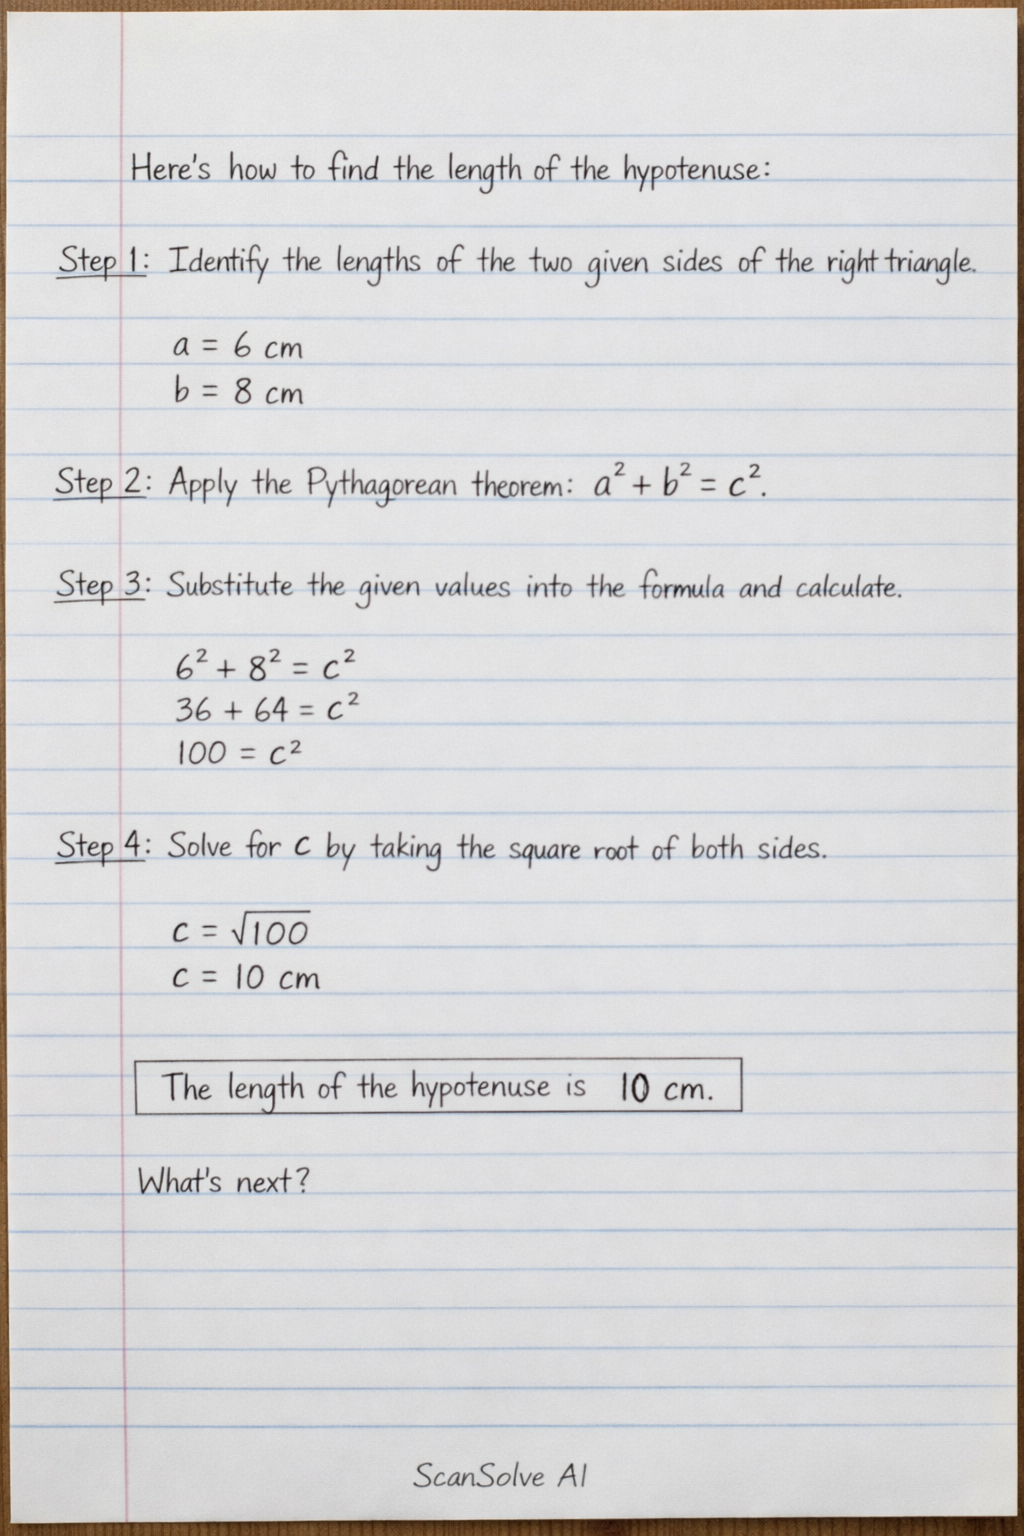 Here's how to find the length of the hypotenuse:
Step 1: Identify the lengths of the two given sides of the right triangle.
a = 6 cm
b = 8 cm
Step 2: Apply the Pythagorean theorem: a² + b² = c².
Step 3: Substitute the given values into the formula and calculate.
6² + 8² = c²
36 + 64 = c²
100 = c²
Step 4: Solve for c by taking the square root of both sides.
c = √100
c = 10 cm
The length of the hypotenuse is 10 cm.
What's next?
ScanSolve AI